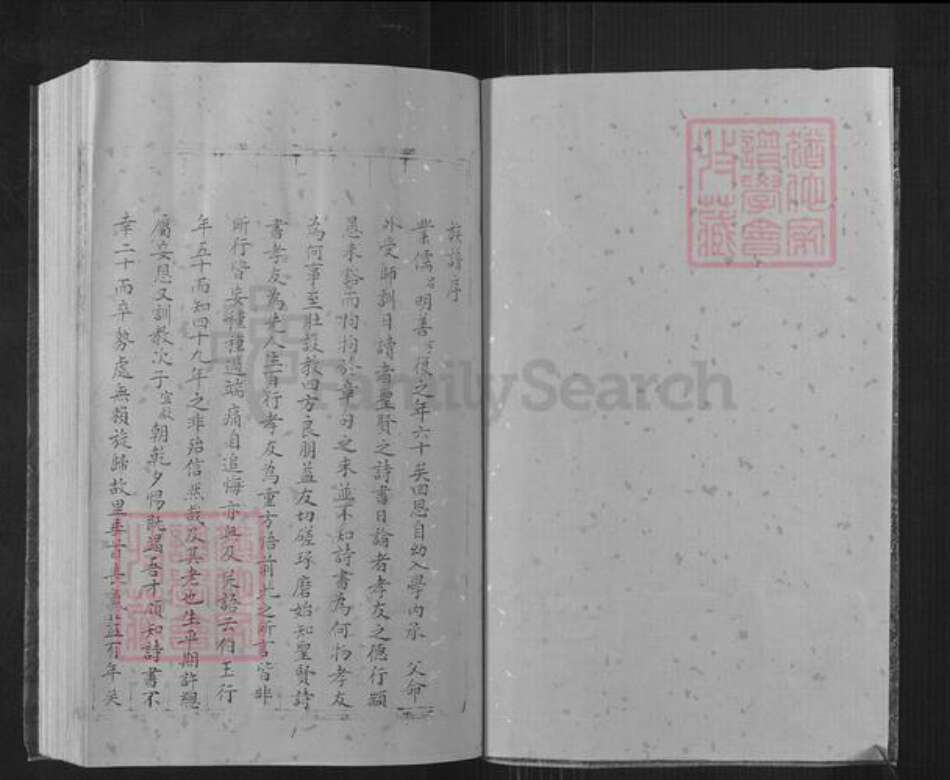 猶他家
譜學會
收藏
族譜序
業儒名明善 後之年六十矣回思自幼入學內承 父命
外受師訓日讀者聖賢之詩書日論者孝友之德行顧
愚未豁而拘拘於章句之末並不知詩書為何物孝友
為何事至壯設教四方良朋益友切磋琢磨始知聖賢詩
書孝友為先人生百行孝友為重方悟前此之所言皆非
所行皆妄種種過端痛自追悔亦無及矣語云伯玉行
年五十而知四十九年之非殆信然哉及其老也生平期許總
屬妄想又訓教次子 朝乾夕惕既竭吾才頗知詩書不
幸二十而卒勢處無賴旋歸故里 益有年矣
FamilySearch